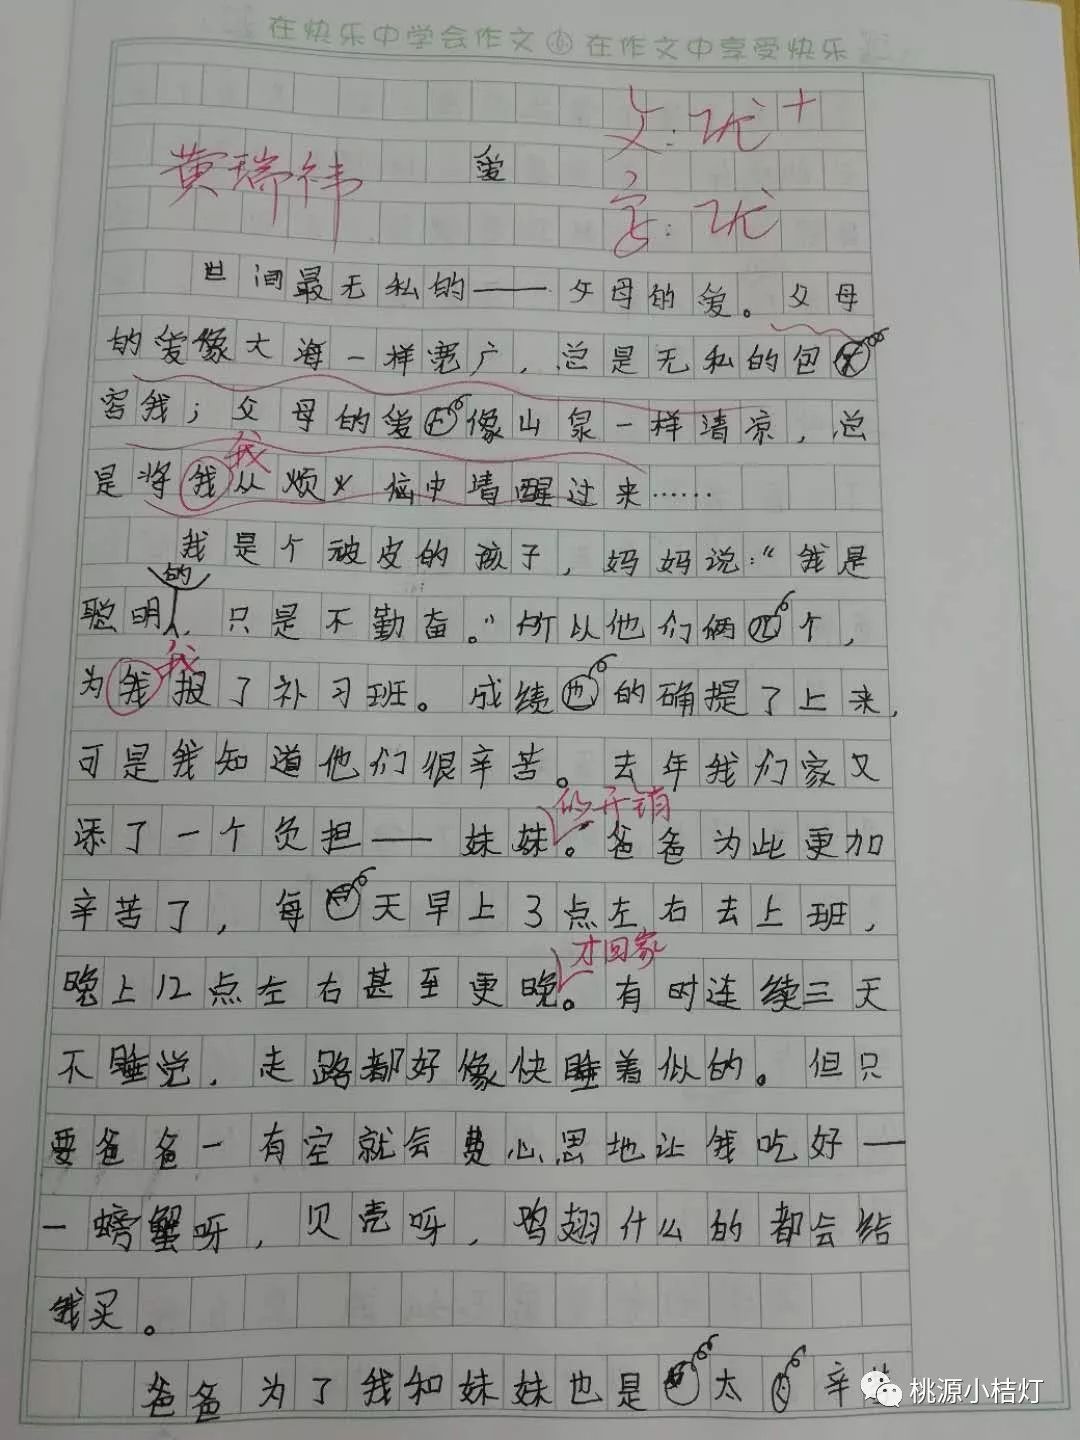 在快乐中学会作文 在作文中享受快乐
文:优+
黄瑞祎 爱
字:优
世间最无私的——父母的爱。父母
的爱像大海一样宽广,总是无私的包
容我;父母的爱像山泉一样清凉,总
我
是将我从烦恼中清醒过来……
我是个顽皮的孩子,妈妈说:“我是
的
聪明人,只是不勤奋。”所以他们俩个,
我
为我报了补习班。成绩的确提了上来,
可是我知道他们很辛苦。去年我们家又
的开销
添了一个负担——妹妹。爸爸为此更加
辛苦了,每天早上3点左右去上班,
才回家
晚上12点左右甚至更晚。有时连续三天
不睡觉,走路都好像快睡着似的。但只
要爸爸一有空就会费心思地让我吃好—
—螃蟹呀,贝壳呀,鸡翅什么的都会给
我买。
爸爸为了我和妹妹也是太辛苦
桃源小桔灯